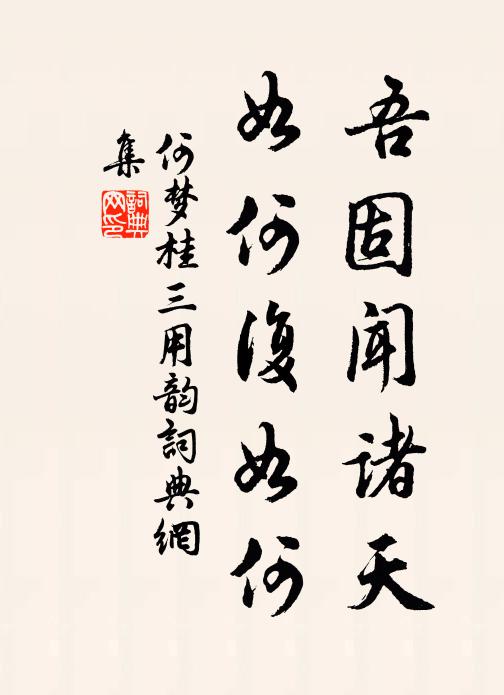 吾固聞诸天
如何復如何
何梦桂三用韵詞典網
集
詞典
网印